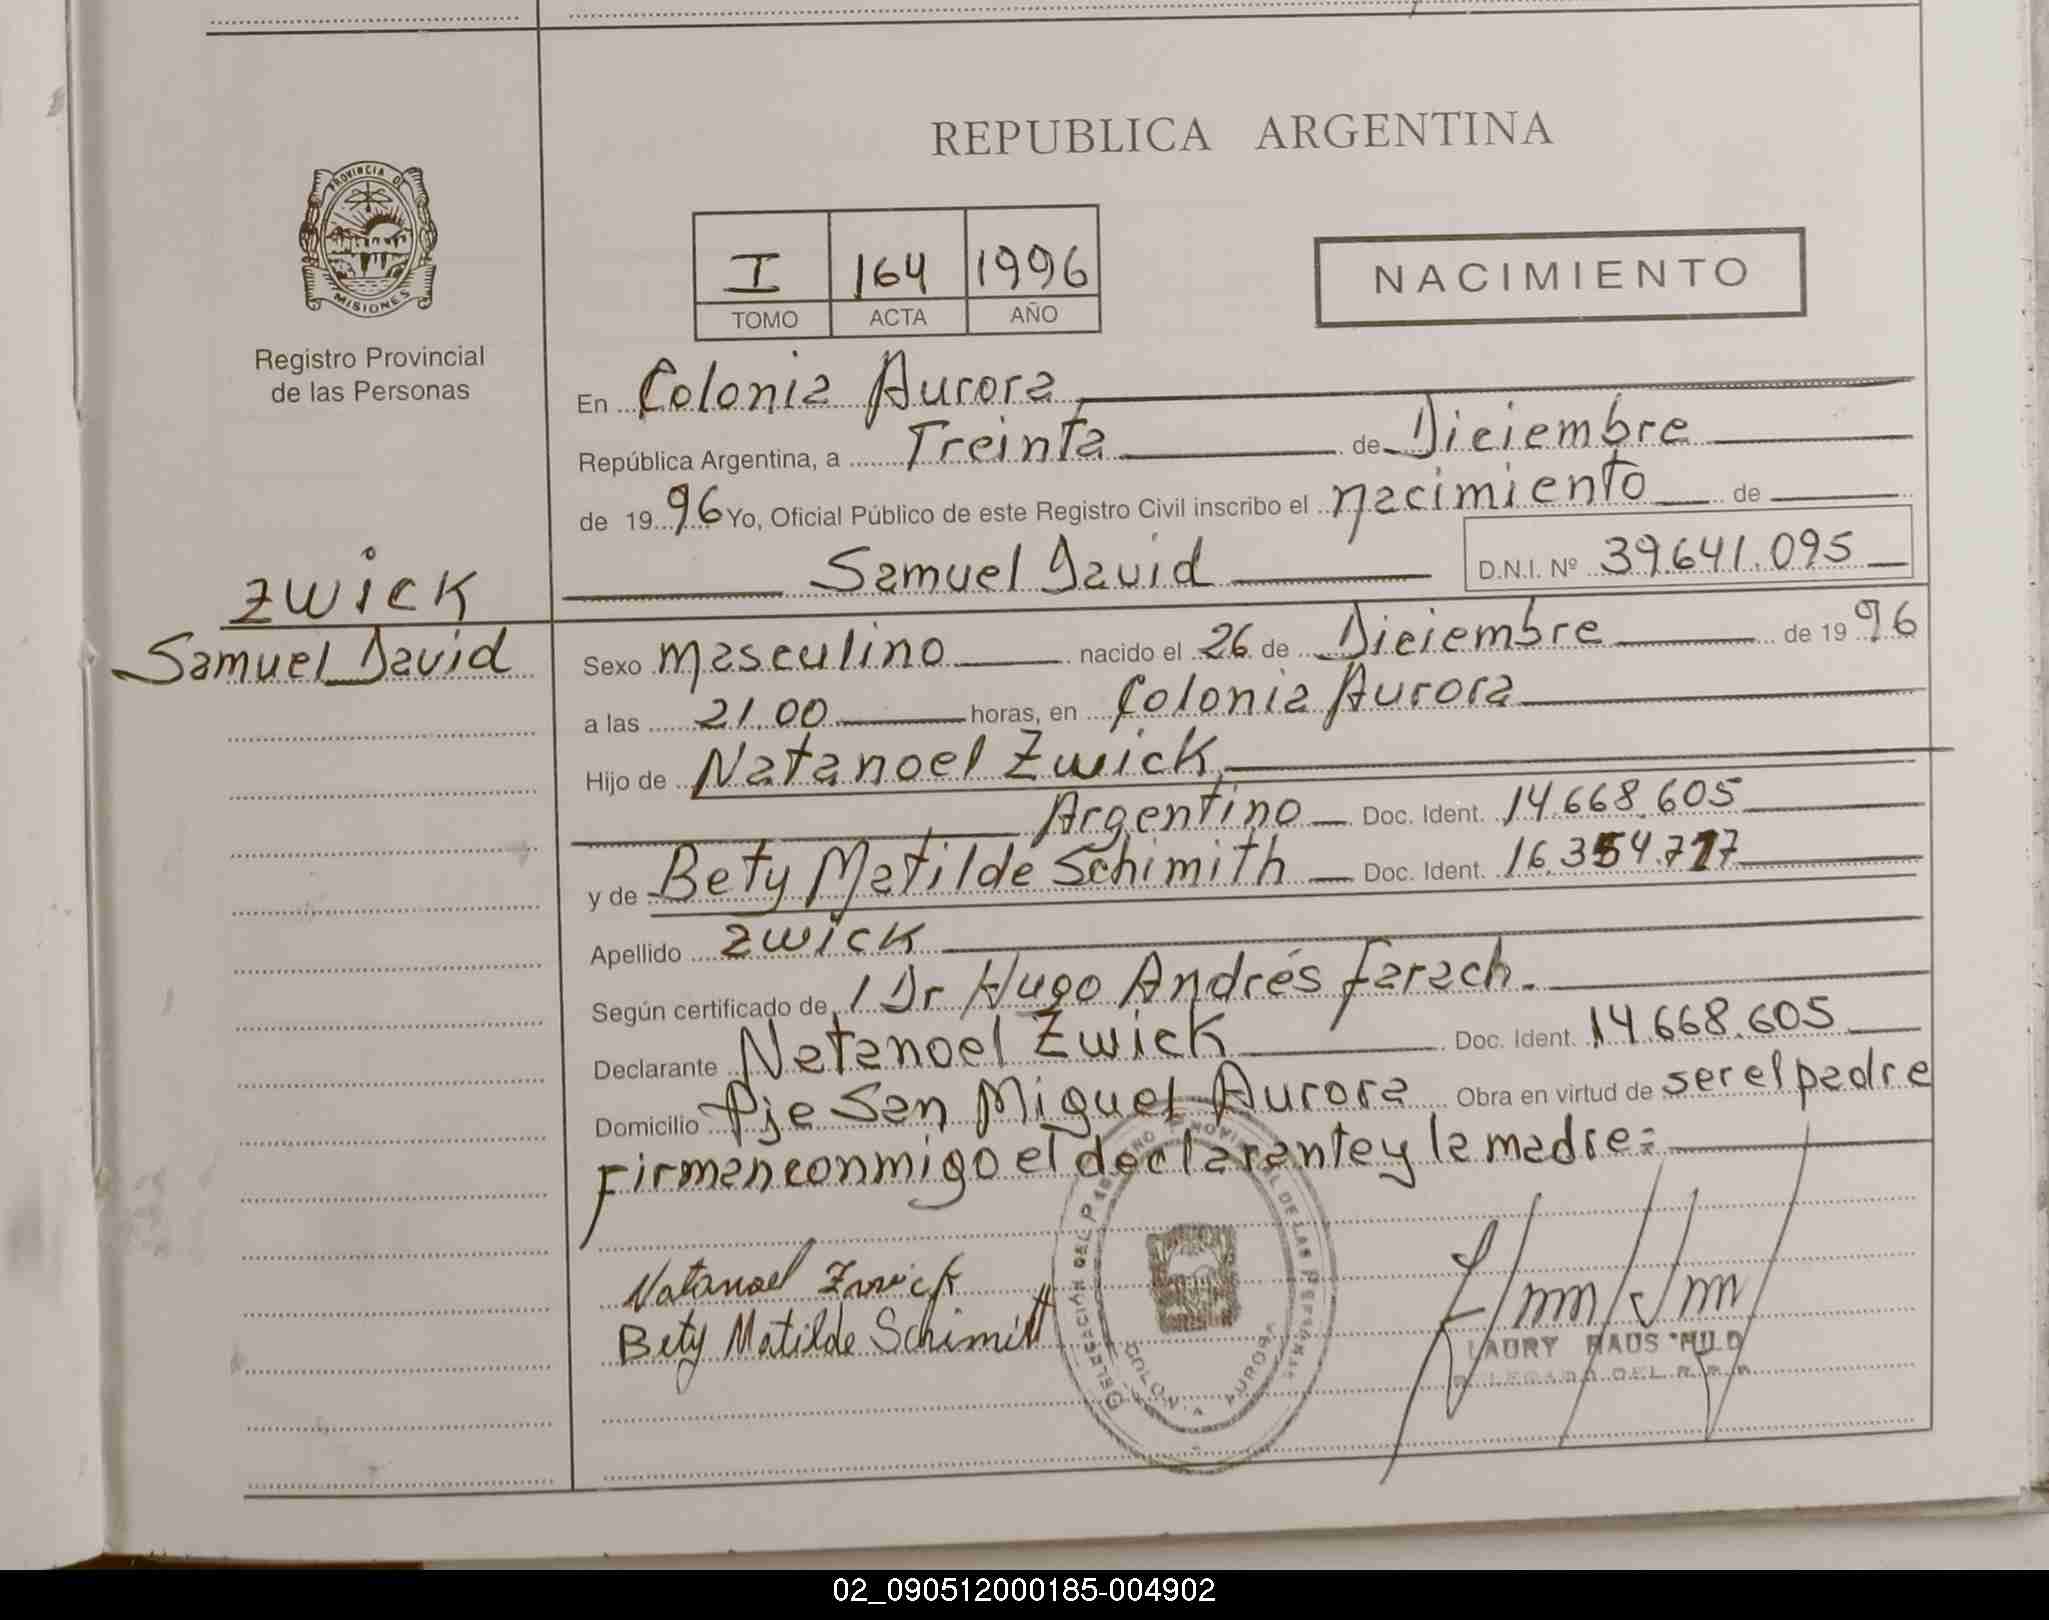 REPUBLICA ARGENTINA
PROVINCIA DE
MISIONES
Registro Provincial
de las Personas
I 164 1996
TOMO ACTA AÑO
NACIMIENTO
En Colonia Aurora
República Argentina, a Treinta de Diciembre
de 1996 Yo, Oficial Público de este Registro Civil inscribo el nacimiento de
Samuel David D.N.I. Nº 39.641.095
ZWICK
Samuel David
Sexo masculino nacido el 26 de Diciembre de 1996
a las 21.00 horas, en Colonia Aurora
Hijo de Natanoel Zwick
Argentino Doc. Ident. 14.668.605
y de Bety Matilde Schimith Doc. Ident. 16.354.717
Apellido Zwick
Según certificado de Dr Hugo Andrés Farach.
Declarante Natanoel Zwick Doc. Ident. 14.668.605
Domicilio Pje San Miguel Aurora Obra en virtud de ser el padre
Firman conmigo el declarante y la madre =
Natanael Zwick
Bety Matilde Schimitt
DELEGACIÓN DEL REGISTRO PROVINCIAL DE LAS PERSONAS
COLONIA AURORA
LAURY HAUS HILD
DELEGADA DEL R.P.P.
02_090512000185-004902